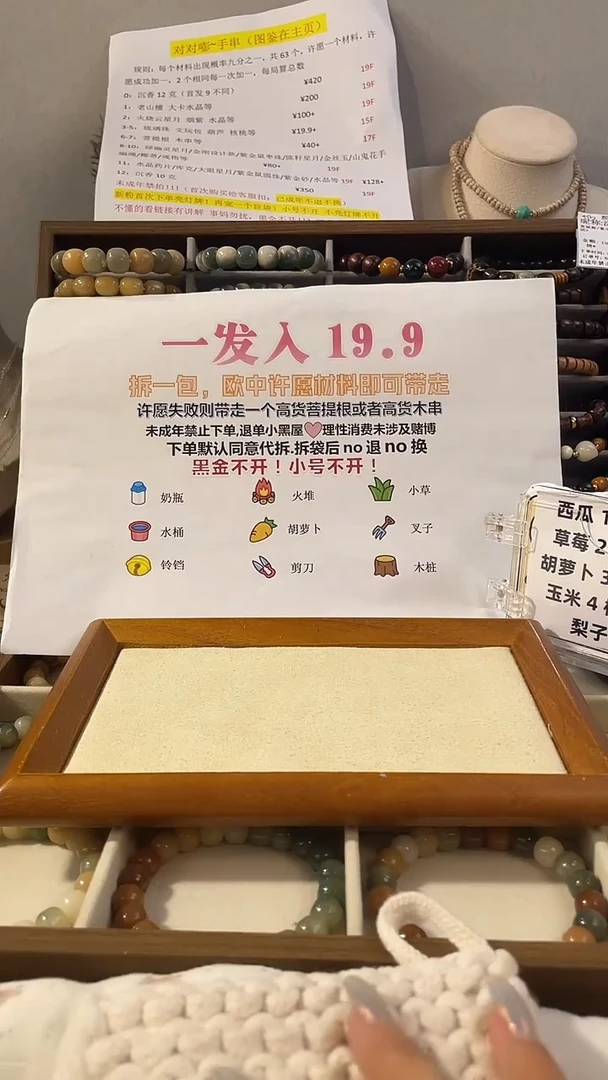 对对嘭~手串（图鉴在主页）
规则：每个材料出现概率九分之一，共63个，许愿一个材料，许
愿成功加一，2个相同每一次加一，每局算总数
0：沉香12克（首发9不同） ¥420 19F
1：老山檀 大卡水晶等 ¥200 19F
2：火烧云星月 烟紫 水晶等 ¥100+ 15F
3-5：琉璃珠 文玩包 葫芦 核桃等 ¥19.9+ 17F
6-7：菩提根 木串等 ¥40+
¥80+ 19F
12：沉香10克 ¥350 19F ¥128+
未成年禁拍!!!（首次购买给客服扣：已成年不退不换）
不懂的看链接有讲解
一发入 19.9
拆一包，欧中许愿材料即可带走
许愿失败则带走一个高货菩提根或者高货木串
未成年禁止下单,退单小黑屋🩷理性消费未涉及赌博
下单默认同意代拆.拆袋后 no 退 no 换
黑金不开！小号不开！
奶瓶 火堆 小草
水桶 胡萝卜 叉子
铃铛 剪刀 木桩
西瓜 1
草莓 2
胡萝卜 3
玉米 4
梨子